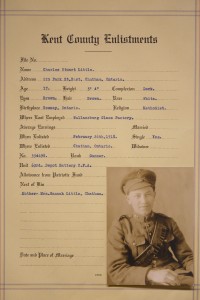 Kent County Enlistments
File No.
Name Charles Stuart Little.
Address Park St. East, Chatham, Ontario.
Age Height 5' 4" Complexion Dark.
Eyes Brown. Hair Brown. Race White.
Birthplace Romney, Ontario. Religion Methodist.
Where Last Employed Wallaceburg Glass Factory.
Average Earnings Married
When Enlisted February 1918. Single Yes.
Where Enlisted Ontario. Widower
No. Rank Gunner.
Unit Depot Battery C.F.A.
Allowance from Patriotic Fund
Next of Kin
Mother: Mrs. Little, Chatham.
Date and Place of Marriage